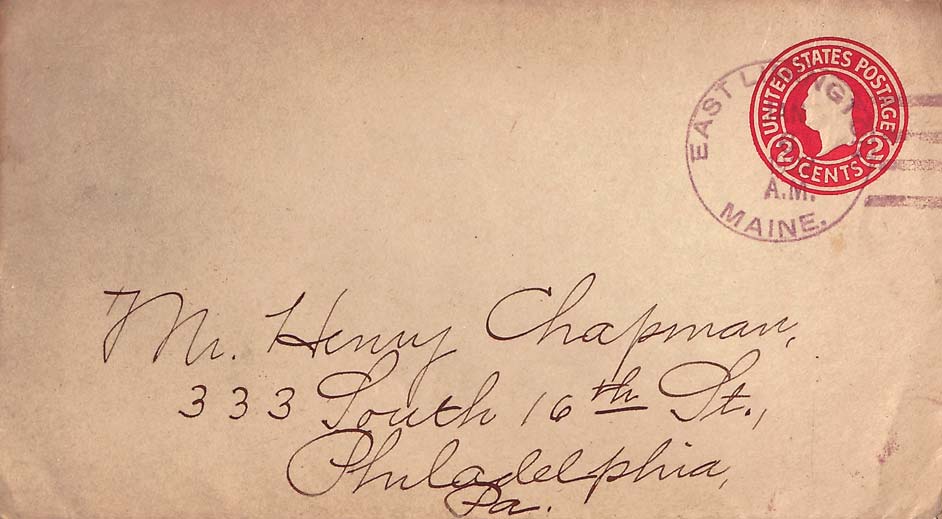 UNITED STATES POSTAGE
2 CENTS 2
EAST
A.M.
MAINE.
Mr. Henry Chapman,
333 South 16th St.,
Philadelphia,
Pa.